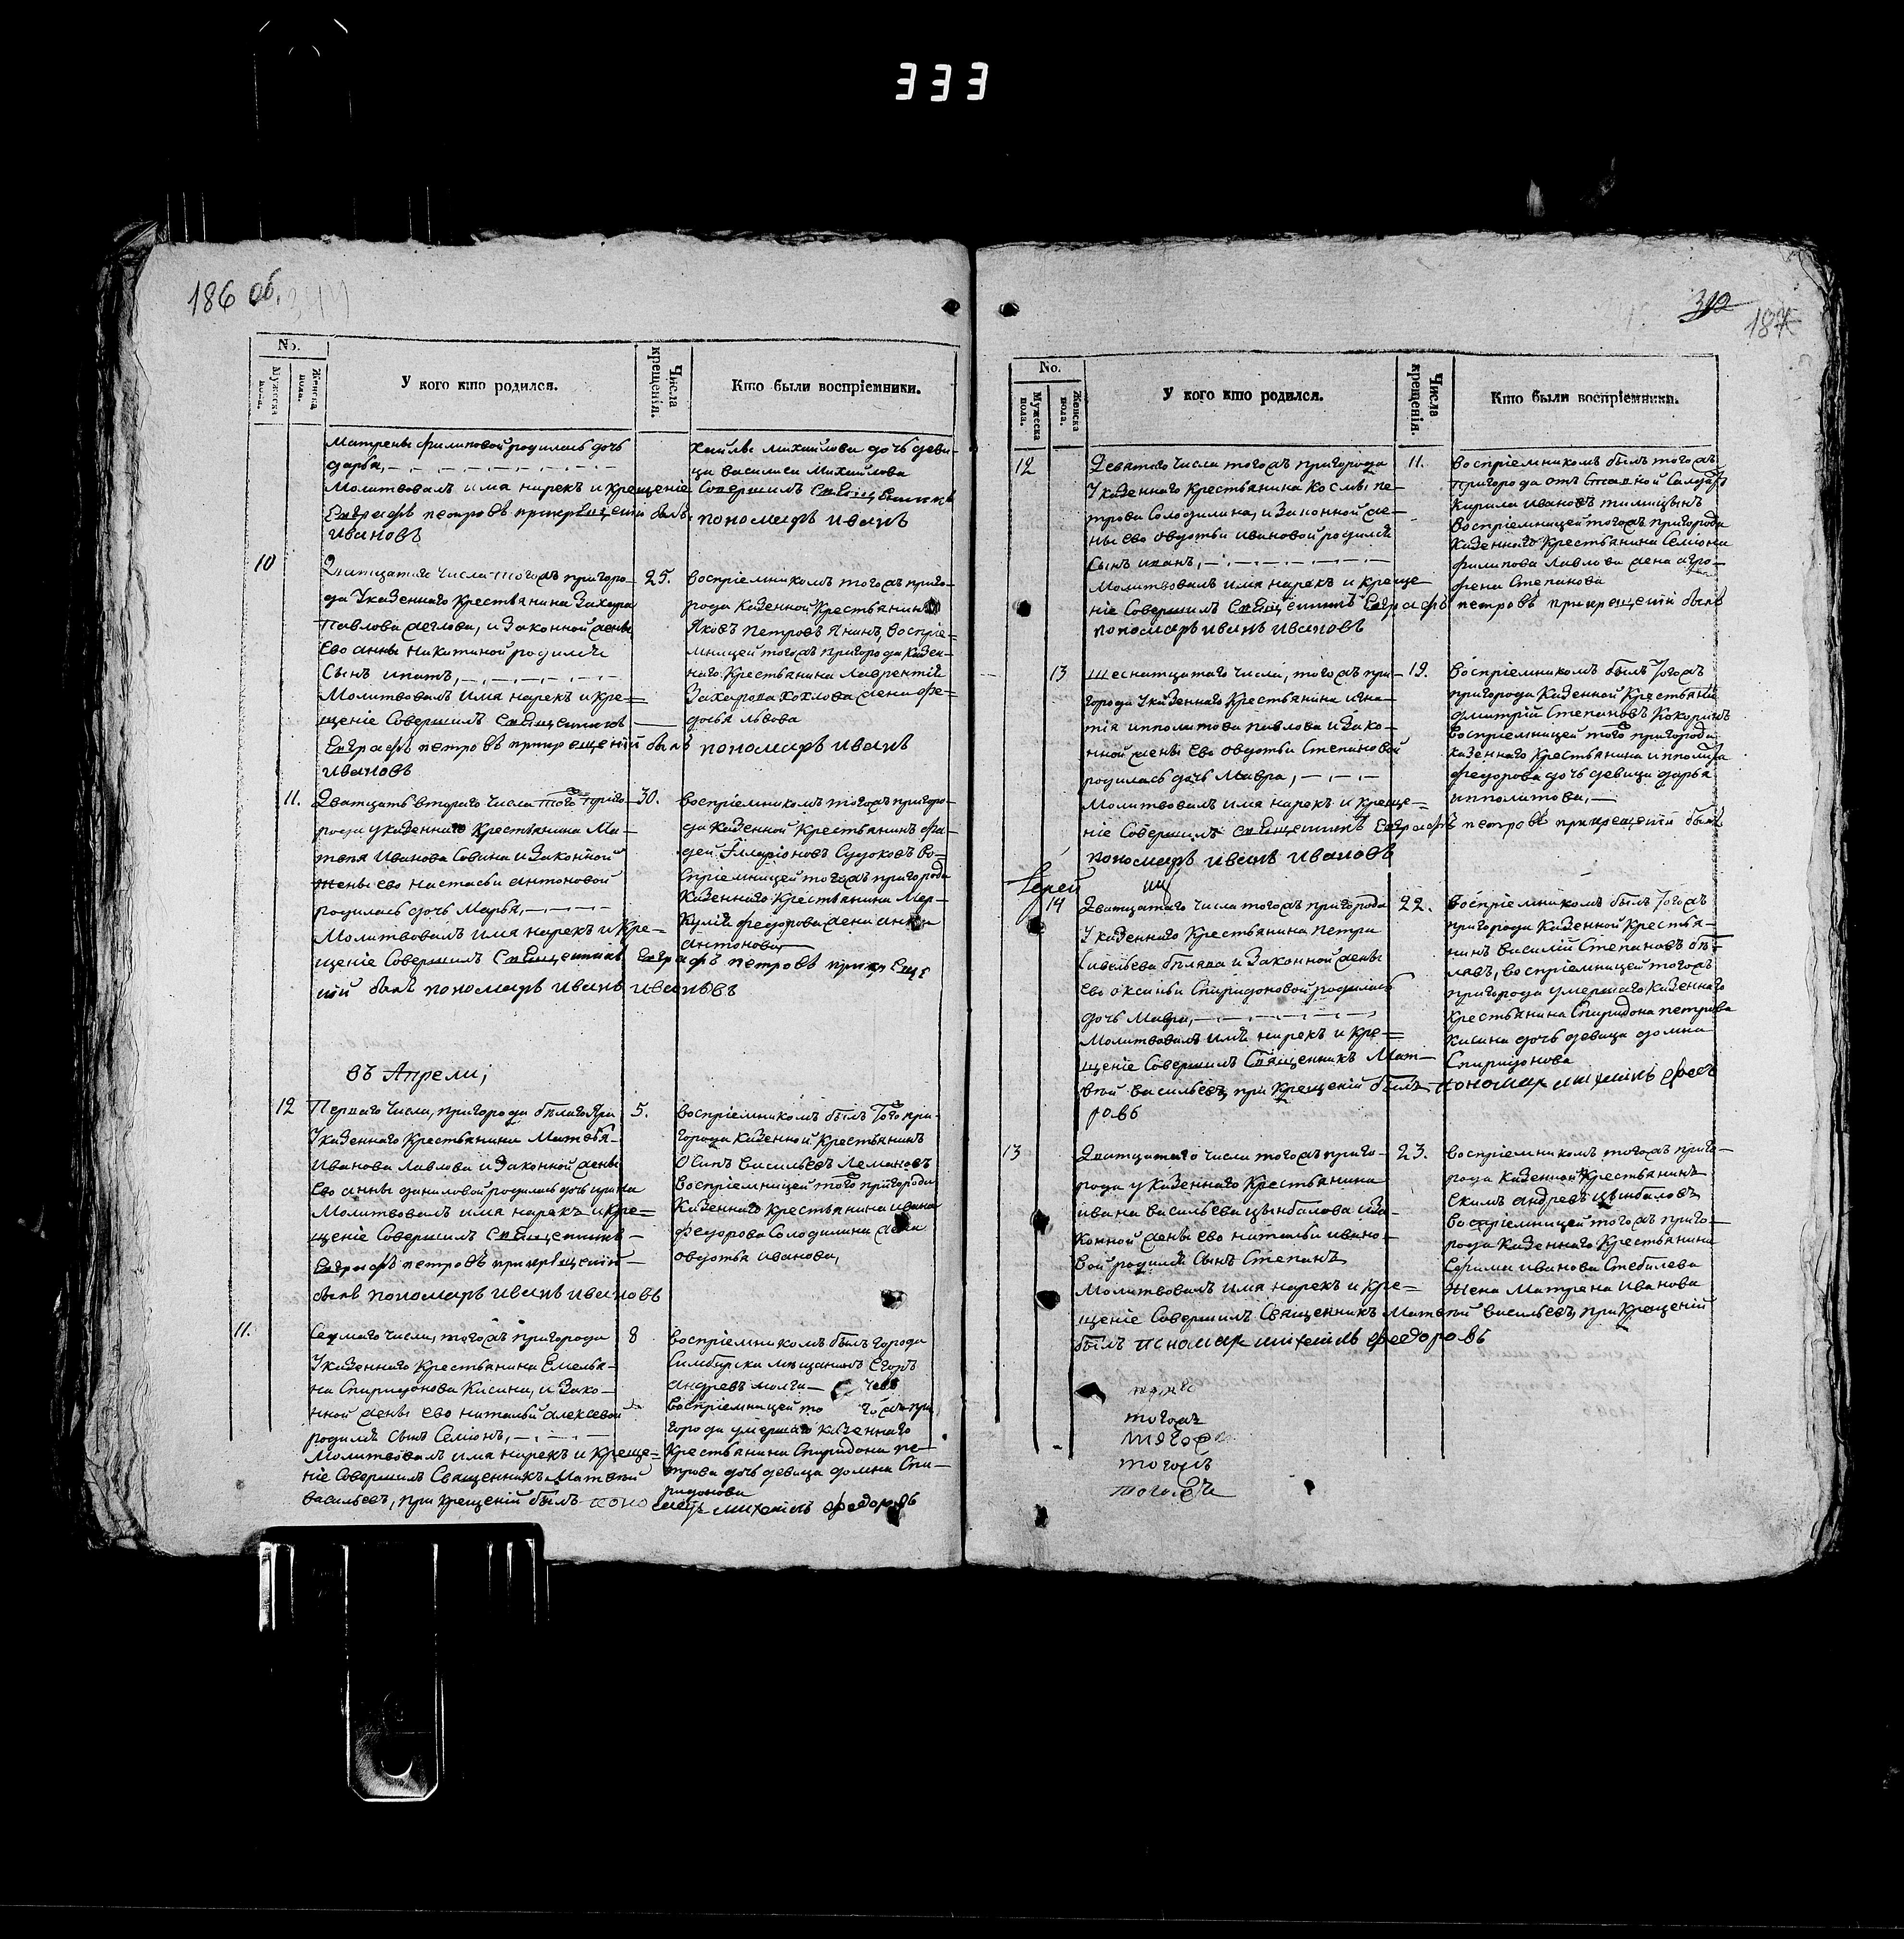 333
186 об.
No.
Мужеска пола.
Женска пола.
У кого кто родился.
Числа крещенія.
Кто были воспріемники.
Матрены Филиповой родилась дочь
дарья,
Молитвовалъ имя нарекъ и крещеніе
Евграфъ петровъ при крещеніи былъ
ивановъ
михайлова дочь деви-
ца василиса Михайлова
Совершилъ Священникъ
пономарь иванъ
10
Дватцатаго числа тогожъ пригоро-
да Указеннаго Крестьянина Захара
Павлова, и Законной жены
Ево анны никитиной родился
Сынъ ипатъ,
Молитвовалъ имя нарекъ и кре=
щеніе Совершилъ Священникъ
Евграфъ петровъ при крещеніи былъ
ивановъ
25.
воспріемникомъ тогожъ приго-
рода казенной Крестьянинъ
Яковъ петровъ Янинъ, воспріе-
мницей тогожъ пригорода казен-
наго Крестьянина Лаврентія
Захарова хохлова жена фе=
досья львова
пономарь иванъ
11.
Дватцать втораго числа того приго-
рода указеннаго Крестьянина Ма-
твея Иванова Савина и Законной
жены ево настасьи антоновой
родилась дочь Марья,
Молитвовалъ имя нарекъ и кре=
щеніе Совершилъ Священникъ Евграфъ петровъ при креще
ніи былъ пономарь иванъ ивановъ
30.
воспріемникомъ тогожъ пригоро-
да казенной Крестьянинъ фа-
дей Илларіоновъ Судоковъ во-
спріемницей тогожъ пригорода
Казеннаго Крестьянина Мер-
курія федорова жена анна
антонова
въ Апрели,
12
Перваго числа, пригорода бѣлаго Яра
Указеннаго Крестьянина Матвѣя
Иванова Павлова и Законной жены
Ево анны даниловой родилась дочь ирина
Молитвовалъ имя нарекъ и кре=
щеніе Совершилъ Священникъ
Евграфъ петровъ при крещеніи
былъ пономарь иванъ ивановъ
5.
воспріемникомъ былъ того при-
города казенной крестьянинъ
Осипъ васильевъ Лемановъ
воспріемницей того пригорода
Казеннаго крестьянина ивана
федорова Солодилина жена
овдотья иванова,
11.
Седмаго числа, тогожъ пригорода
Указеннаго Крестьянина Емелья-
на Спиридонова Кисина, и Зако-
нной жены ево натальи алексевой
родился сынъ Семіонъ,
Молитвовалъ имя нарекъ и креще=
ніе Совершилъ Священникъ Матвѣй
васильевъ, при крещеніи былъ пономарь михаилъ федоровъ
8
воспріемникомъ былъ города
Симбирска мѣщанинъ Егоръ
андревъ
воспріемницей тогожъ при
города умершаго казеннаго
крестьянина Спиридона пе-
трова дочь девица домна Спи-
ридонова
310
187
No.
Мужеска пола.
Женска пола.
У кого кто родился.
Числа крещенія.
Кто были воспріемники.
12
Девятаго числа тогожъ пригорода
Указеннаго Крестьянина Космы пе-
трова Солодилина, и Законной же-
ны ево овдотьи ивановой родился
Сынъ иванъ,
Молитвовалъ имя нарекъ и креще-
ніе Совершилъ Священникъ Евграфъ петровъ при крещеніи былъ
пономарь иванъ ивановъ
11.
воспріемникомъ былъ тогожъ
пригорода отставной Салдатъ
Кирила ивановъ
воспріемницей тогожъ пригорода
казеннаго Крестьянина Семіона
филипова Павлова жена агро-
фена Степанова
13
Шеснатцатаго числа, тогожъ при-
города Указеннаго Крестьянина игна-
тія ипполитова Павлова и Зако-
нной жены ево овдотьи Степановой
родилась дочь Мавра,
Молитвовалъ имя нарекъ и креще=
ніе Совершилъ Священникъ Евграфъ петровъ при крещеніи былъ
пономарь иванъ ивановъ
19.
воспріемникомъ былъ тогожъ
пригорода казенной Крестьянинъ
дмитрій Степановъ Кокоринъ
воспріемницей того пригорода
казеннаго Крестьянина ипполита
федорова дочь девица дарья
ипполитова,
Іерей
14
Дватцатаго числа тогожъ пригорода
Указеннаго Крестьянина петра
Савельева бѣлява и Законной жены
Ево оксиньи Спиридоновой родилась
дочь Мавра,
Молитвовалъ имя нарекъ и кре=
щеніе Совершилъ Священникъ Мат-
вѣй васильевъ, при крещеніи былъ пономар михаилъ федо
ровъ
22.
воспріемникомъ былъ тогожъ
пригорода казенной Крестья-
нинъ василій Степановъ бѣ-
лявъ, воспріемницей тогожъ
пригорода умершаго казеннаго
крестьянина Спиридона петрова
кисина дочь девица домна
Спиридонова
13
Дватцатаго числа тогожъ приго-
рода указеннаго Крестьянина
ивана васильева цынбалова и за-
конной жены ево натальи ивано-
вой родился сынъ Степанъ
Молитвовалъ имя нарекъ и кре=
щеніе Совершилъ Священникъ Матвѣй васильевъ, при крещеніи
былъ пономар михаилъ федоровъ
23.
воспріемникомъ тогожъ приго-
рода казенной Крестьянинъ
Екимъ андревъ цынбаловъ
воспріемницей тогожъ приго-
рода казеннаго Крестьянина
иванова Стебалева
жена Матрена иванова
тогожъ
тогож
тогожъ